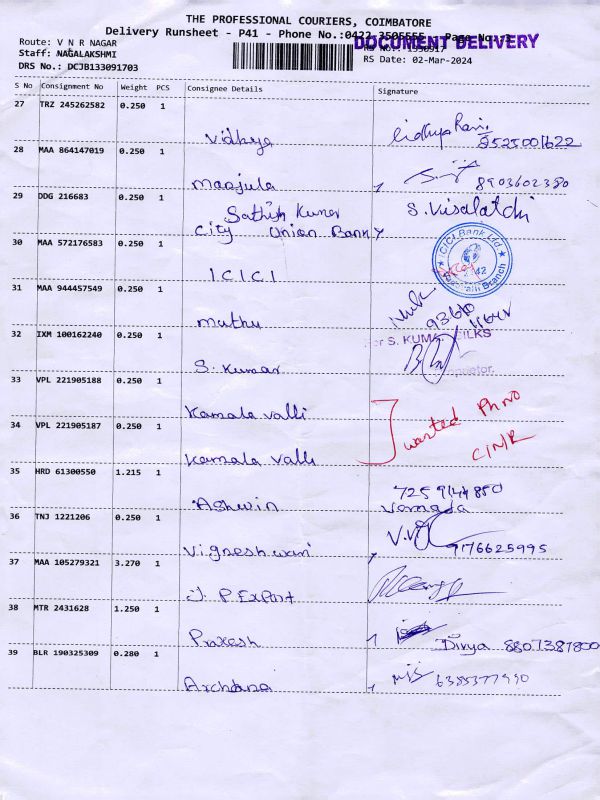 THE PROFESSIONAL COURIERS, COIMBATORE
Delivery Runsheet - P41 - Phone No.:0422 3505555 Page No.:3
DOCUMENT DELIVERY
Route: V N R NAGAR
RS No.: 1330917
Staff: NAGALAKSHMI
RS Date: 02-Mar-2024
DRS No.: DCJB133091703
S No Consignment No Weight PCS Consignee Details Signature
27 TRZ 245262582 0.250 1
Vidhya Vidhya Rani 8525001622
28 MAA 864147019 0.250 1
Manjula 8903602380
29 DDG 216683 0.250 1
Sathish Kumar S. Visalatchi
City Union Bank
30 MAA 572176583 0.250 1
I.C.I.C.I ICICI Bank Ltd. Branch
31 MAA 944457549 0.250 1
Muthu
32 IXM 100162240 0.250 1
For S. KUMA SILKS
S. Kumar Proprietor.
33 VPL 221905188 0.250 1
Kamala valli wanted Ph no
34 VPL 221905187 0.250 1
Kamala valli C/N/R
35 HRD 61300550 1.215 1
7259144850
Ashwin
36 TNJ 1221206 0.250 1
Vigneshwari V.V 9176625995
37 MAA 105279321 3.270 1
J. P. Export
38 MTR 2431628 1.250 1
Prakash Divya 8807387800
39 BLR 190325309 0.280 1
Archana 6385377990